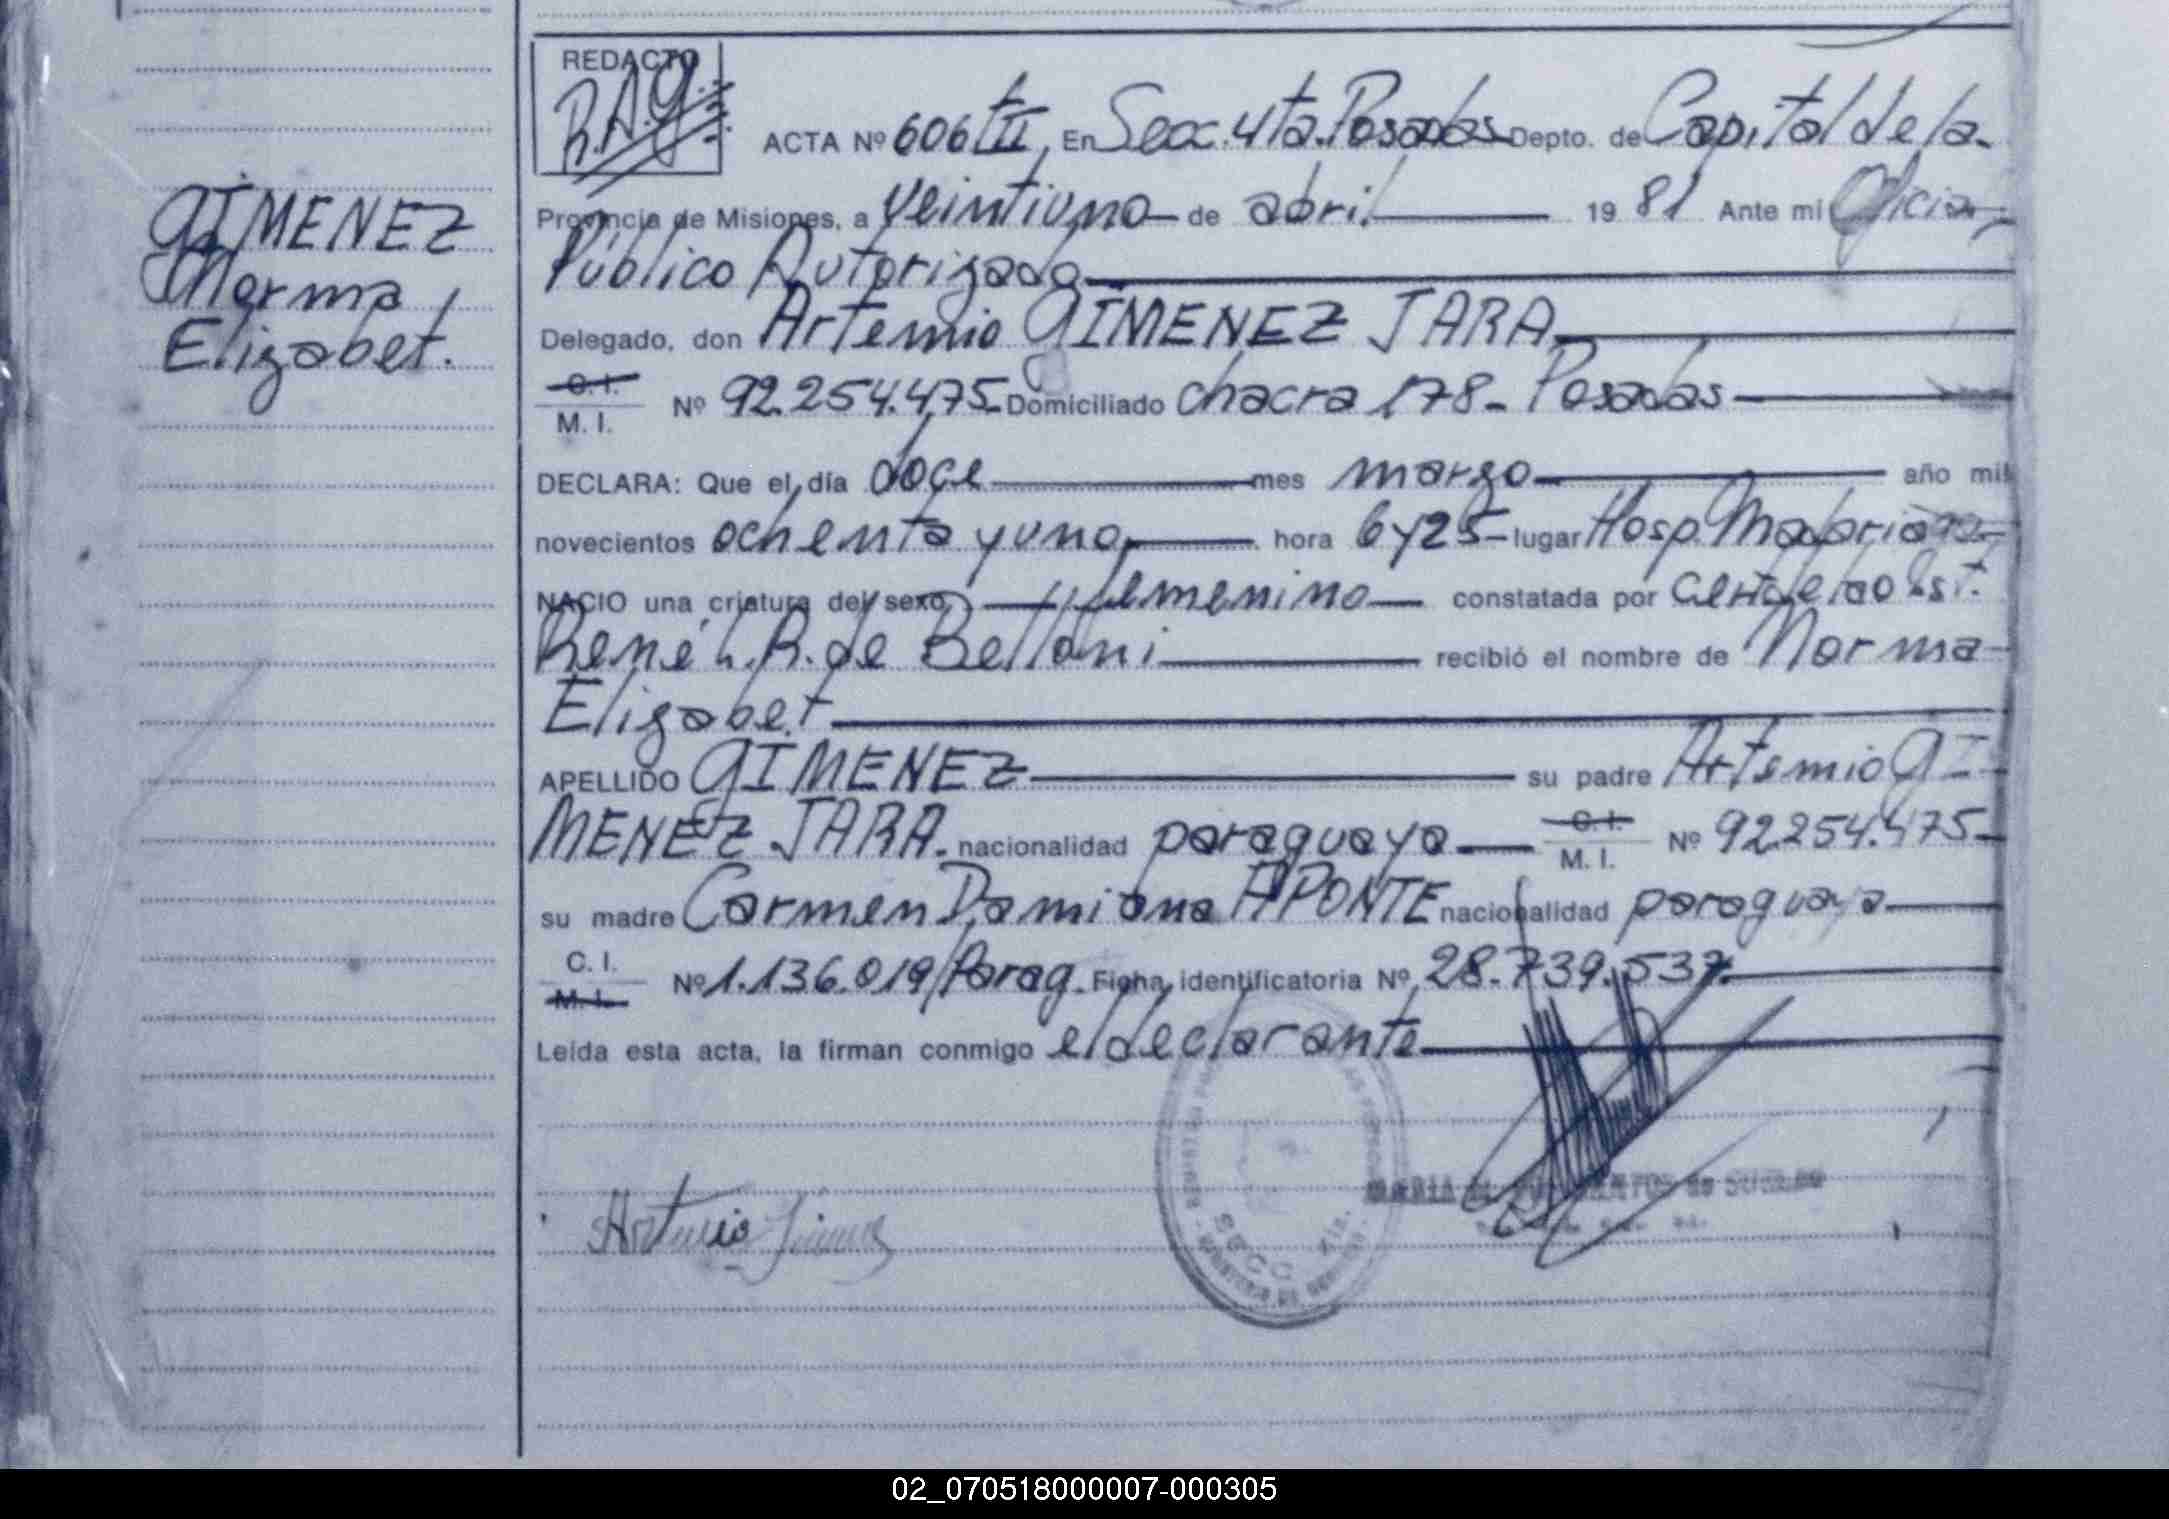 REDACTO
R.A.G.
ACTA Nº 606 tII, En Secc. 4ta. Posadas Depto. de Capital de la
Provincia de Misiones, a veintiuno de abril 19 81 Ante mi Oficial
Público Autorizado
Delegado, don Artemio GIMENEZ JARA
C. I.
M. I. Nº 92.254.475 Domiciliado chacra 178 - Posadas
DECLARA: Que el día doce mes marzo año mil
novecientos ochenta y uno hora 6 y 25 lugar Hosp. Madariaga
NACIO una criatura del sexo femenino constatada por
René L. R. de Belloni recibió el nombre de Norma
Elizabet
APELLIDO GIMENEZ su padre Artemio GI
MENEZ JARA. nacionalidad paraguaya C. I. M. I. Nº 92.254.475
su madre Carmen Damiana APONTE nacionalidad paraguaya
C. I.
M. I. Nº 1.136.019/Parag. Ficha identificatoria Nº 28.739.537.
Leída esta acta, la firman conmigo el declarante
GIMENEZ
Norma
Elizabet.
SECC 4ta.
MARIA
02_070518000007-000305